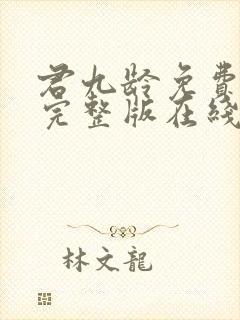 君九龄免費
完整版在綫
林文龍